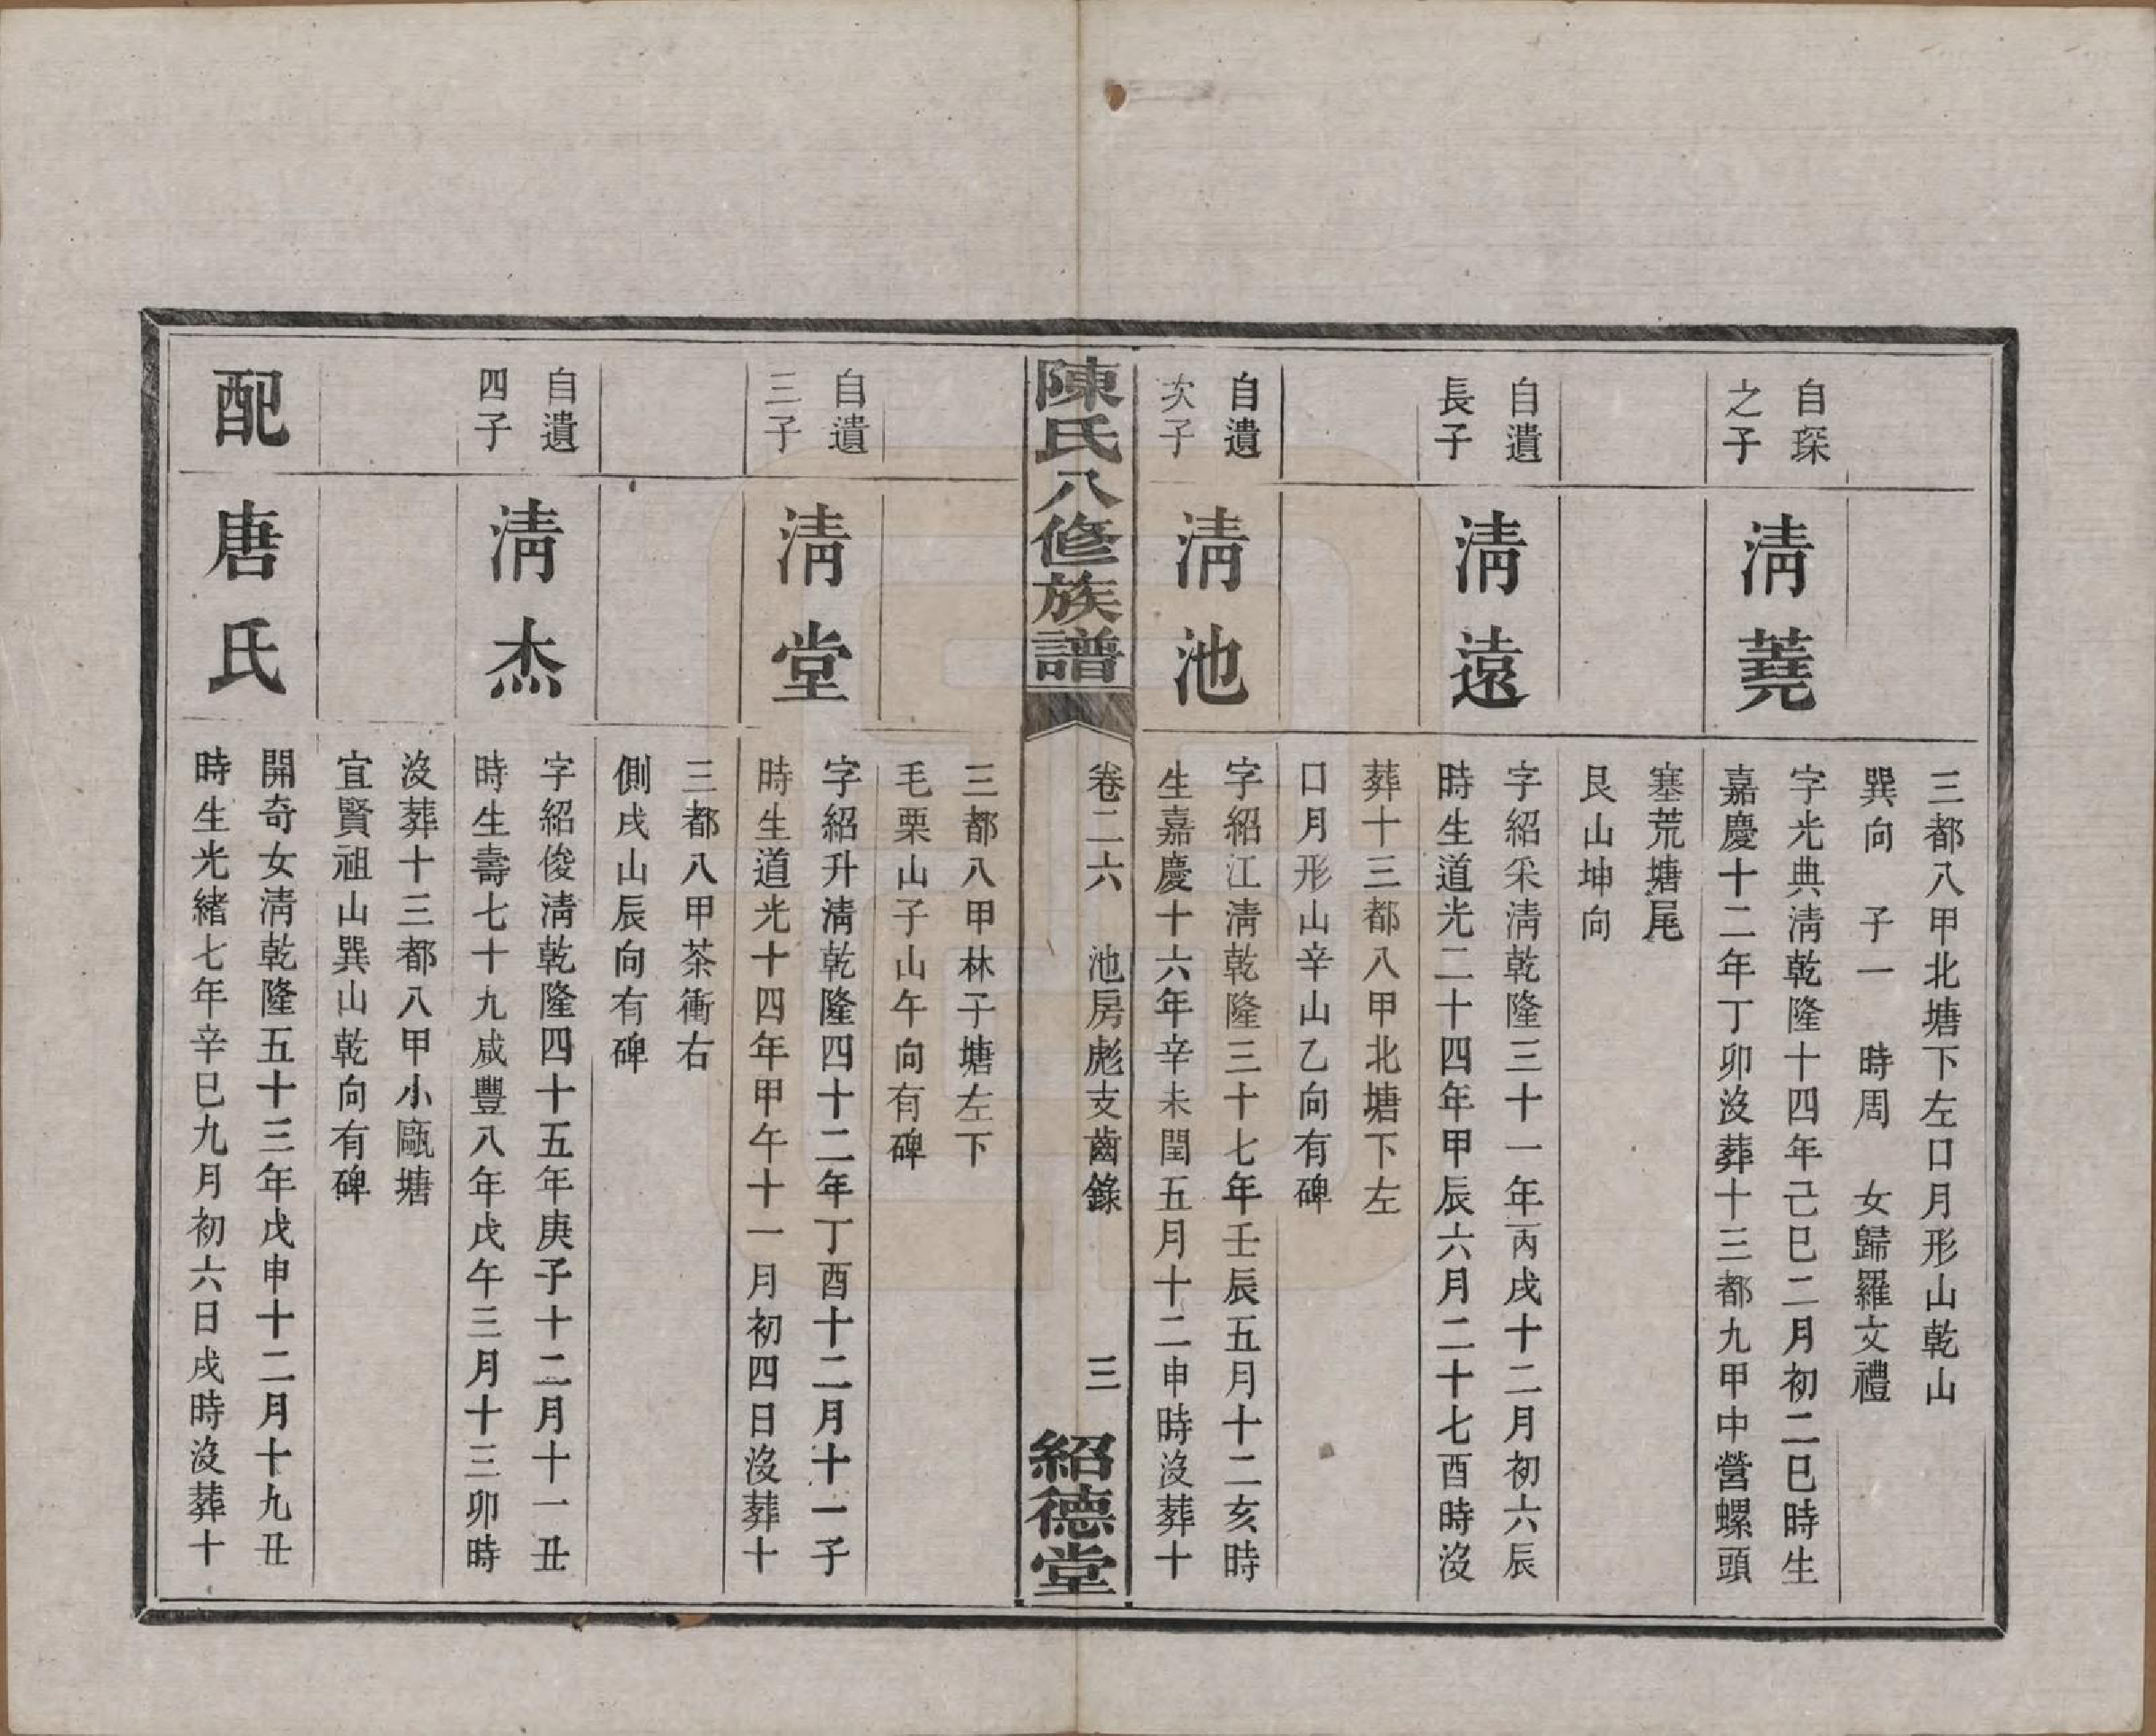 三都八甲北塘下左口月形山乾山
巽向　子一　時周　女歸羅文禮
自琛
之子
淸蕘
字光典淸乾隆十四年己巳二月初二巳時生
嘉慶十二年丁卯沒葬十三都九甲中營螺頭
塞荒塘尾
艮山坤向
自遺
長子
淸遠
字紹采淸乾隆三十一年丙戌十二月初六辰
時生道光二十四年甲辰六月二十七酉時沒
葬十三都八甲北塘下左
口月形山辛山乙向有碑
自遺
次子
淸池
字紹江淸乾隆三十七年壬辰五月十二亥時
生嘉慶十六年辛未閏五月十二申時沒葬十
陳氏八修族譜
卷二六　池房彪支齒錄　三
紹德堂
三都八甲林子塘左下
毛栗山子山午向有碑
自遺
三子
淸堂
字紹升淸乾隆四十二年丁酉十二月十一子
時生道光十四年甲午十一月初四日沒葬十
三都八甲茶衝右
側戌山辰向有碑
自遺
四子
淸杰
字紹俊淸乾隆四十五年庚子十二月十一丑
時生壽七十九咸豐八年戊午三月十三卯時
沒葬十三都八甲小甌塘
宜賢祖山巽山乾向有碑
配
唐氏
開奇女淸乾隆五十三年戊申十二月十九丑
時生光緒七年辛巳九月初六日戌時沒葬十